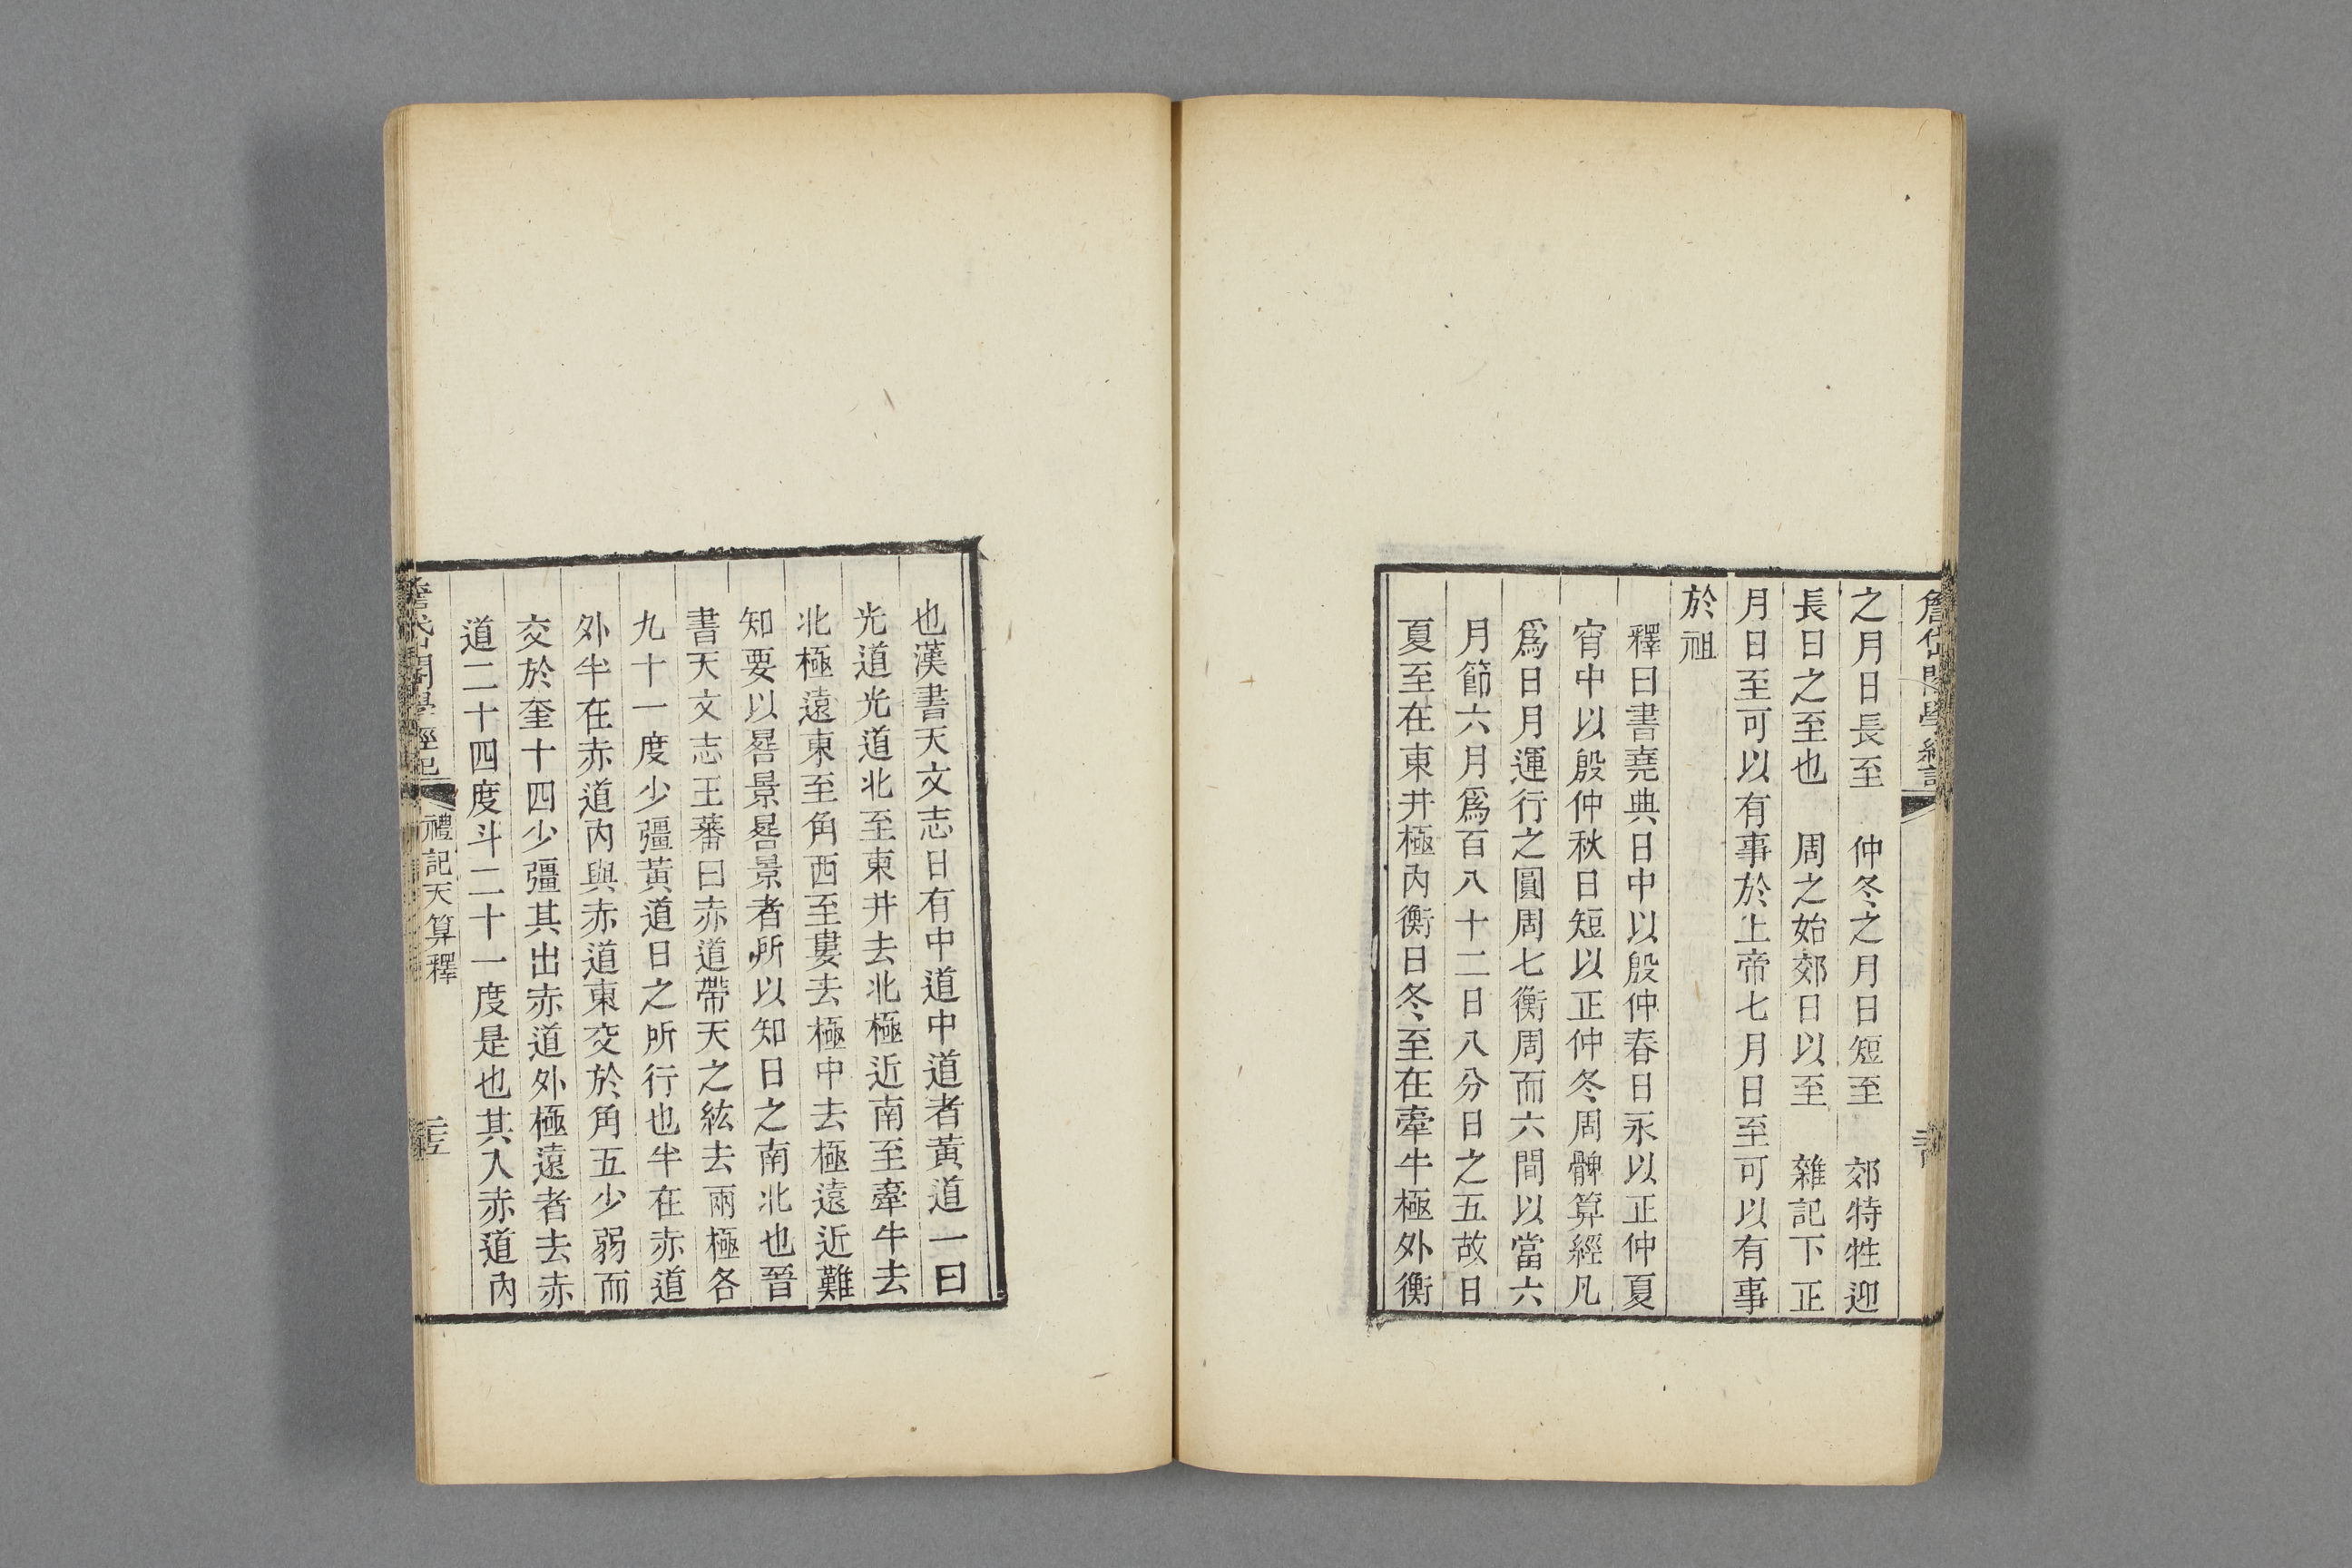 之月日長至　仲冬之月日短至　郊特牲迎
長日之至也　周之始郊日以至　雜記下正
月日至可以有事於上帝七月日至可以有事
於祖
釋曰書堯典日中以殷仲春日永以正仲夏
宵中以殷仲秋日短以正仲冬周髀算經凡
爲日月運行之圓周七衡周而六間以當六
月節六月爲百八十二日八分日之五故日
夏至在東井極內衡日冬至在牽牛極外衡
也漢書天文志日有中道中道者黃道一曰
光道光道北至東井去北極近南至牽牛去
北極遠東至角西至婁去極中去極遠近難
知要以晷景晷景者所以知日之南北也晉
書天文志王蕃曰赤道帶天之紘去兩極各
九十一度少彊黃道日之所行也半在赤道
外半在赤道內與赤道東交於角五少弱而
交於奎十四少彊其出赤道外極遠者去赤
道二十四度斗二十一度是也其入赤道內
禮記天算釋